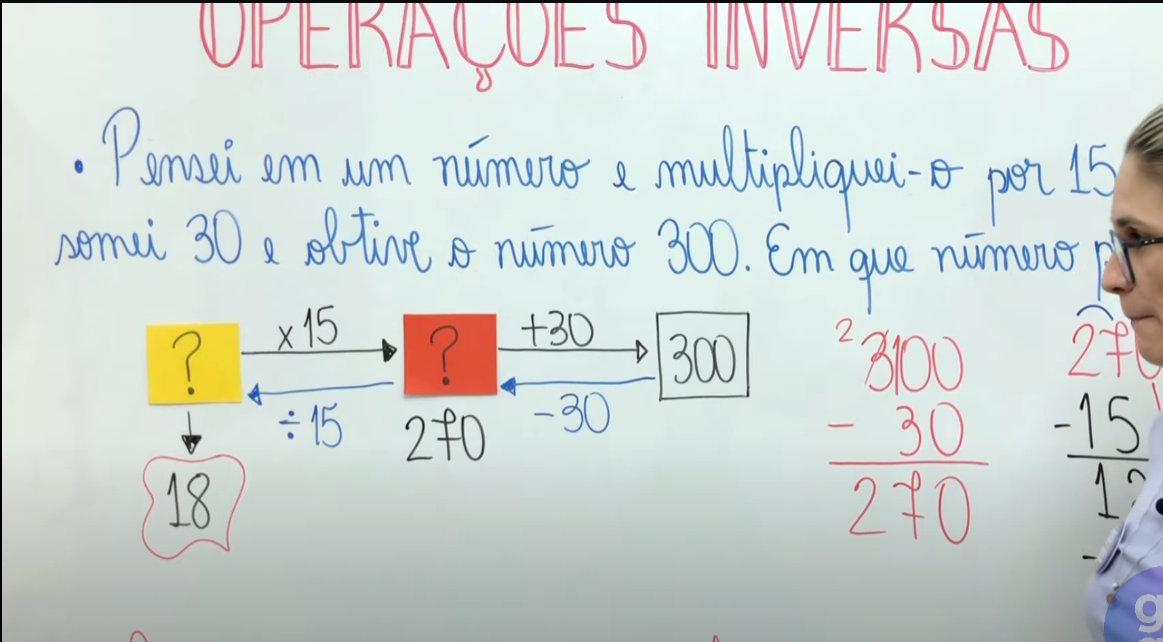 OPERAÇÕES INVERSAS
• Pensei em um número e multipliquei-o por 15
somei 30 e obtive o número 300. Em que número
? x15 ? +30 300
÷15 -30
270
18
2 3100
- 30
270
270
-15
1
-
g